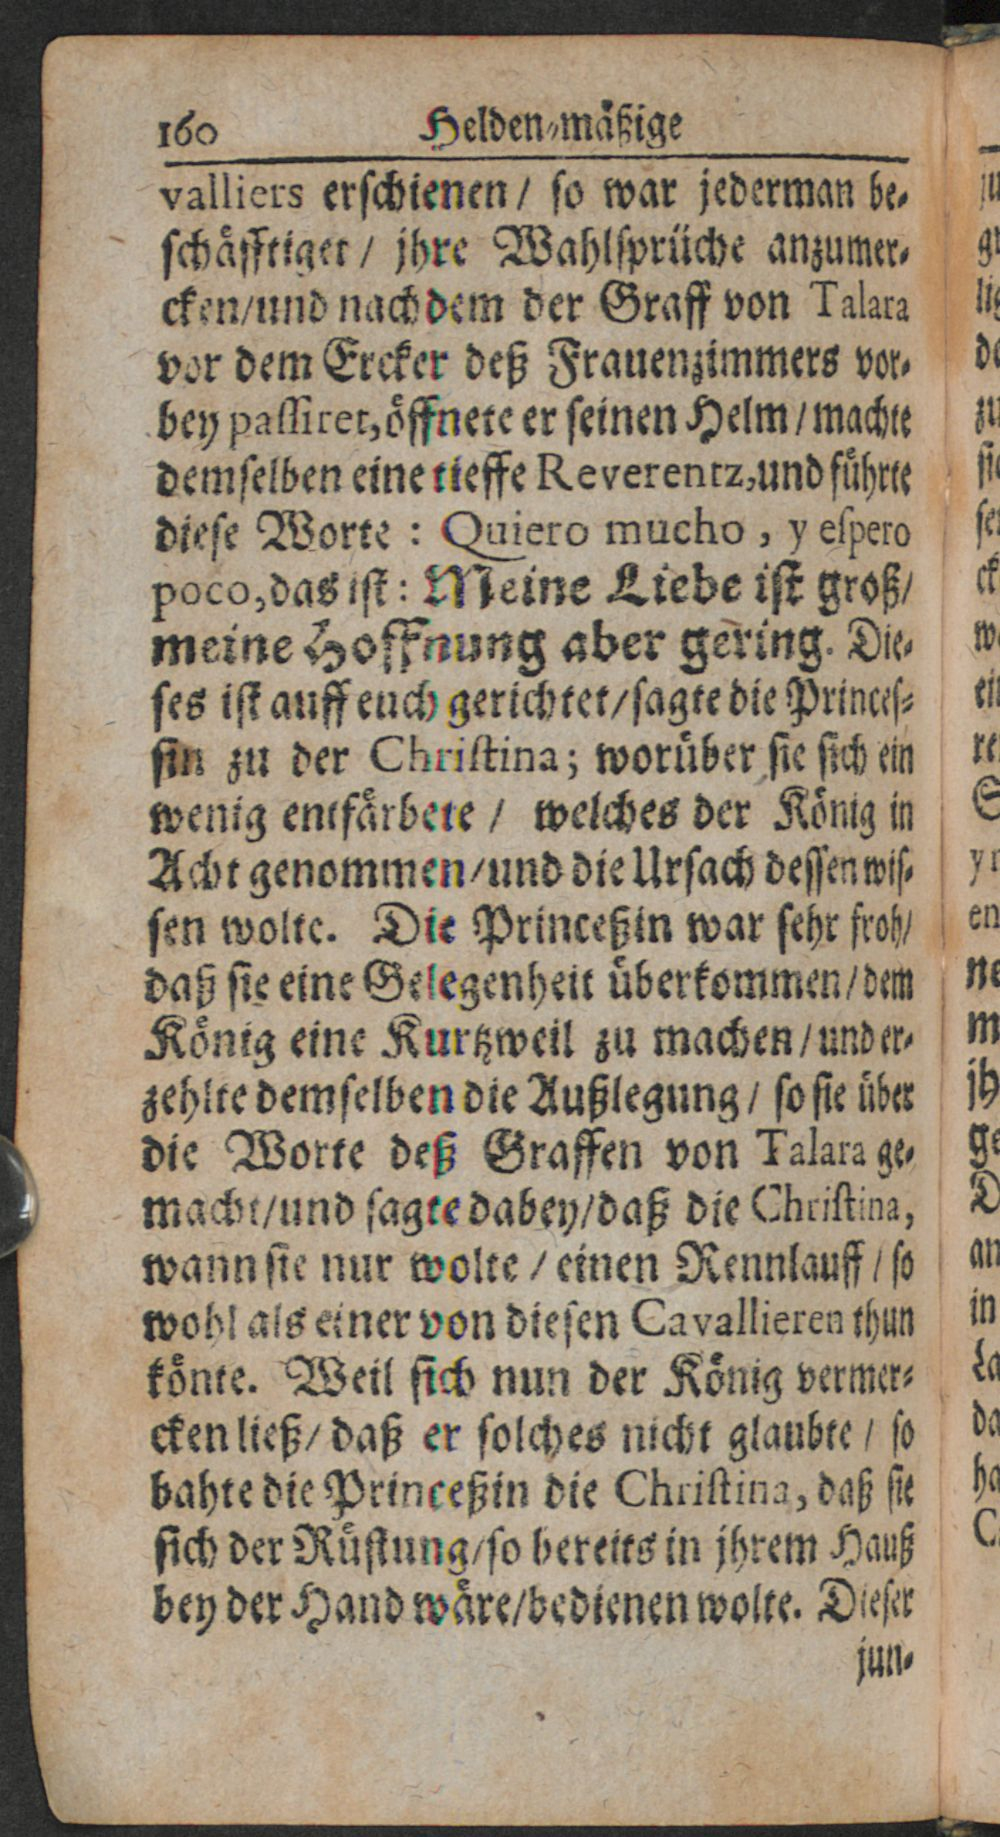 160 Helden-mäßige
valliers erschienen / so war jederman be-
schäfftiget / jhre Wahlsprüche anzumer-
cken/und nach dem der Graff von Talara
vor dem Ercker deß Frauenzimmers vor-
bey passiret, öffnete er seinen Helm / machte
demselben eine tieffe Reverentz, und führte
diese Worte : Quiero mucho , y espero
poco, das ist : Meine Liebe ist groß/
meine Hoffnung aber gering. Die-
ses ist auff euch gerichtet/sagte die Princes-
sin zu der Christina; worüber sie sich ein
wenig entfärbete / welches der König in
Acht genommen/und die Ursach dessen wis-
sen wolte. Die Princeßin war sehr froh/
daß sie eine Gelegenheit überkommen/dem
König eine Kurtzweil zu machen / und er-
zehlte demselben die Außlegung / so sie über
die Worte deß Graffen von Talara ge-
macht/und sagte dabey/daß die Christina,
wann sie nur wolte / einen Rennlauff / so
wohl als einer von diesen Cavallieren thun
könte. Weil sich nun der König vermer-
cken ließ/ daß er solches nicht glaubte / so
bahte die Princeßin die Christina, daß sie
sich der Rüstung/so bereits in jhrem Hauß
bey der Hand wäre/bedienen wolte. Dieser
jun-